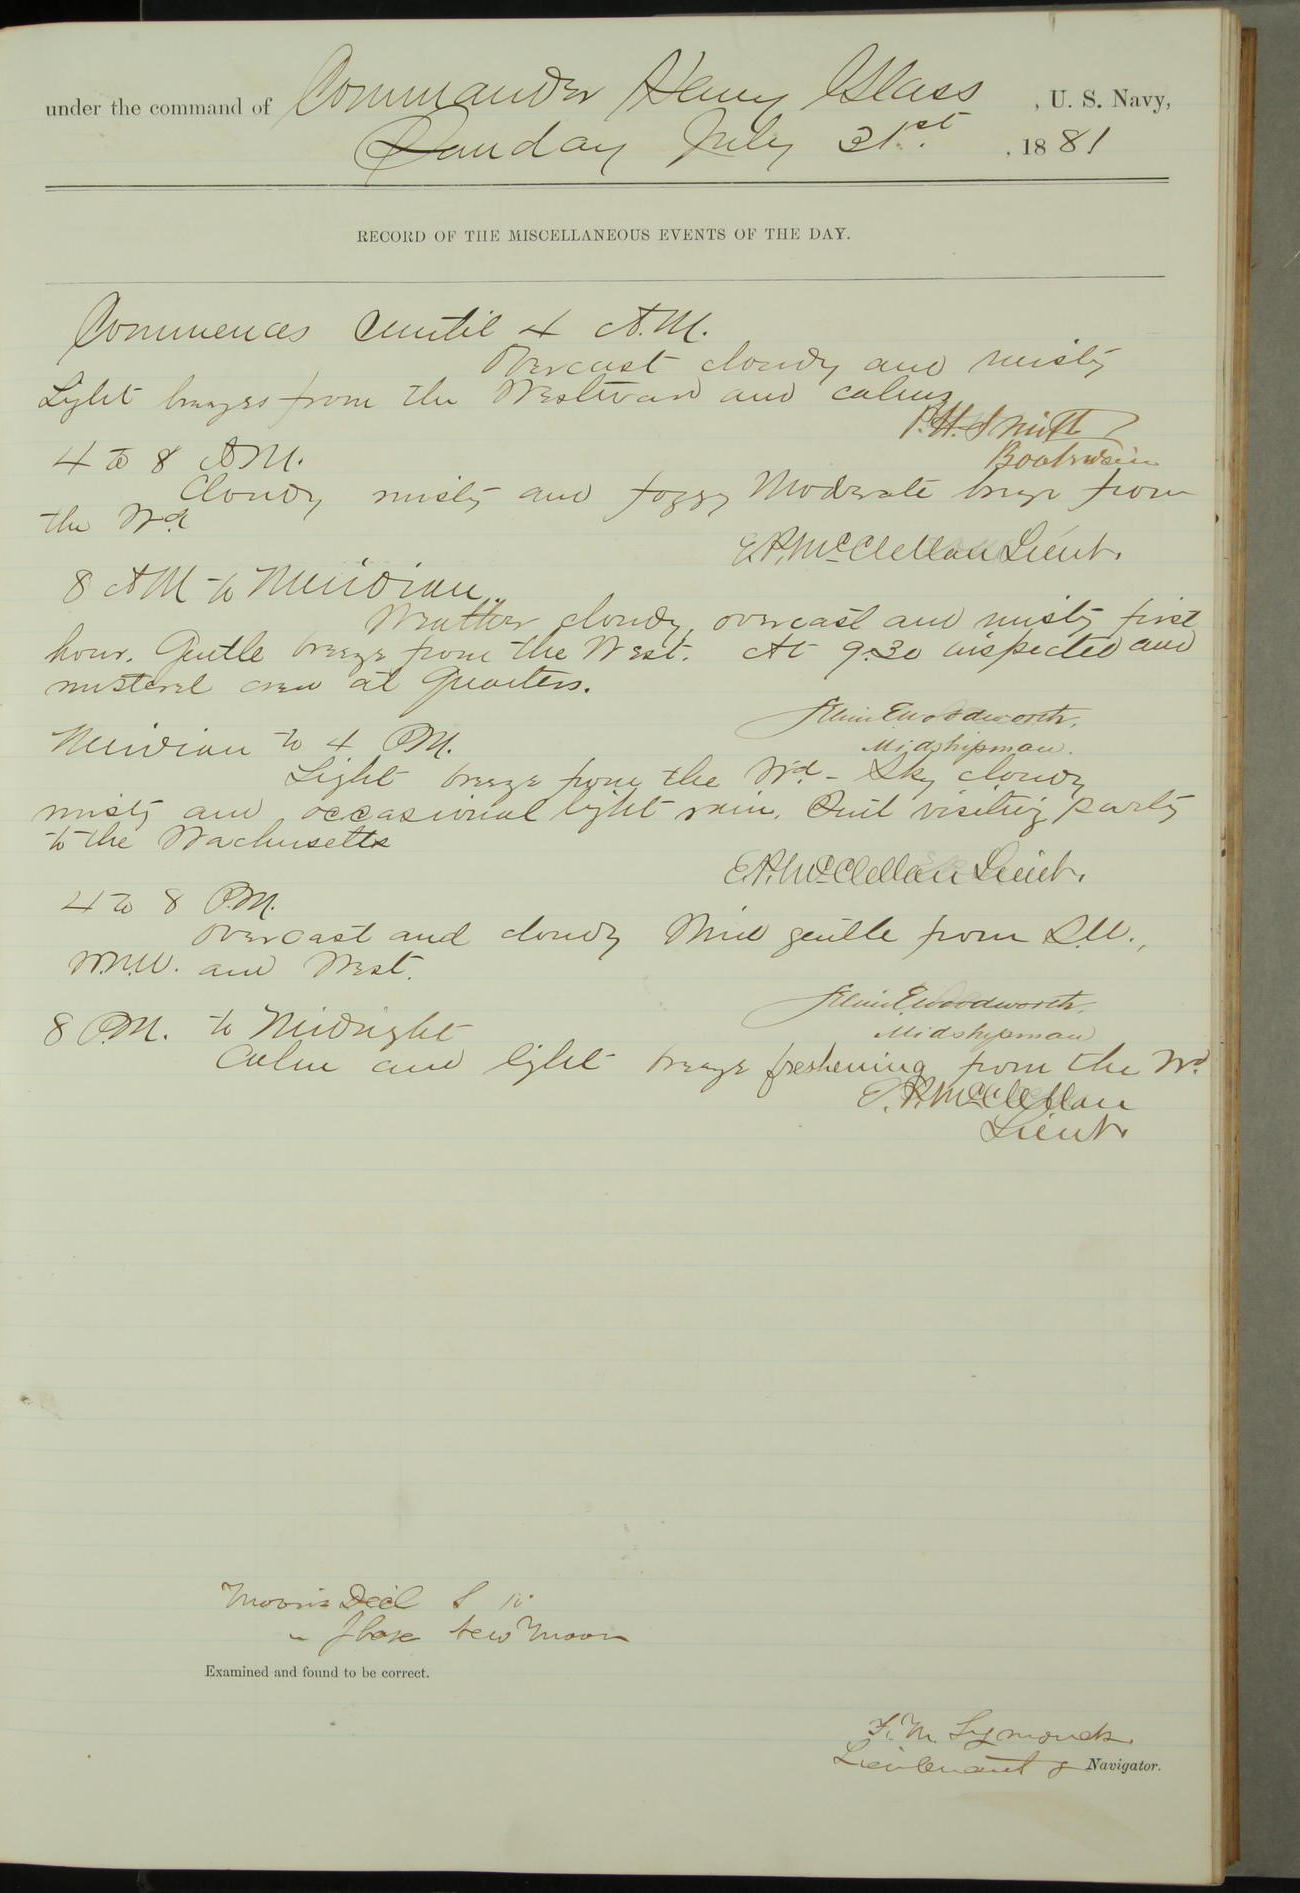 under the command of Commander Henry Glass , U. S. Navy,
Sunday July 31st. , 1881
RECORD OF THE MISCELLANEOUS EVENTS OF THE DAY.
Commences until 4 A.M.
Overcast cloudy and misty
Light breezes from the Westward and calms
P.H. Smith
Boatswain
4 to 8 A.M.
Cloudy misty and foggy Moderate breeze from
the Wd.
E.P. McClellan Lieut.
8 A.M. to Meridian.
Weather cloudy, overcast and misty first
hour. Gentle breeze from the West. At 9.30 inspected and
mustered crew at Quarters.
Selim E. Woodworth.
Midshipman.
Meridian to 4 P.M.
Light breeze from the Wd. - Sky cloudy
misty and occasional light rain. Sent visiting party
to the Wachusetts
E.P. McClellan Lieut.
4 to 8 P.M.
Overcast and cloudy Wind gentle from S.W.,
W.N.W. and West.
Selim E. Woodworth.
Midshipman
8 P.M. to Midnight
Calm and light breeze freshening from the Wd.
E.P. McClellan
Lieut.
Moon's Decl S
" Phase New Moon
Examined and found to be correct.
F. M. Symonds.
Lieutenant & Navigator.